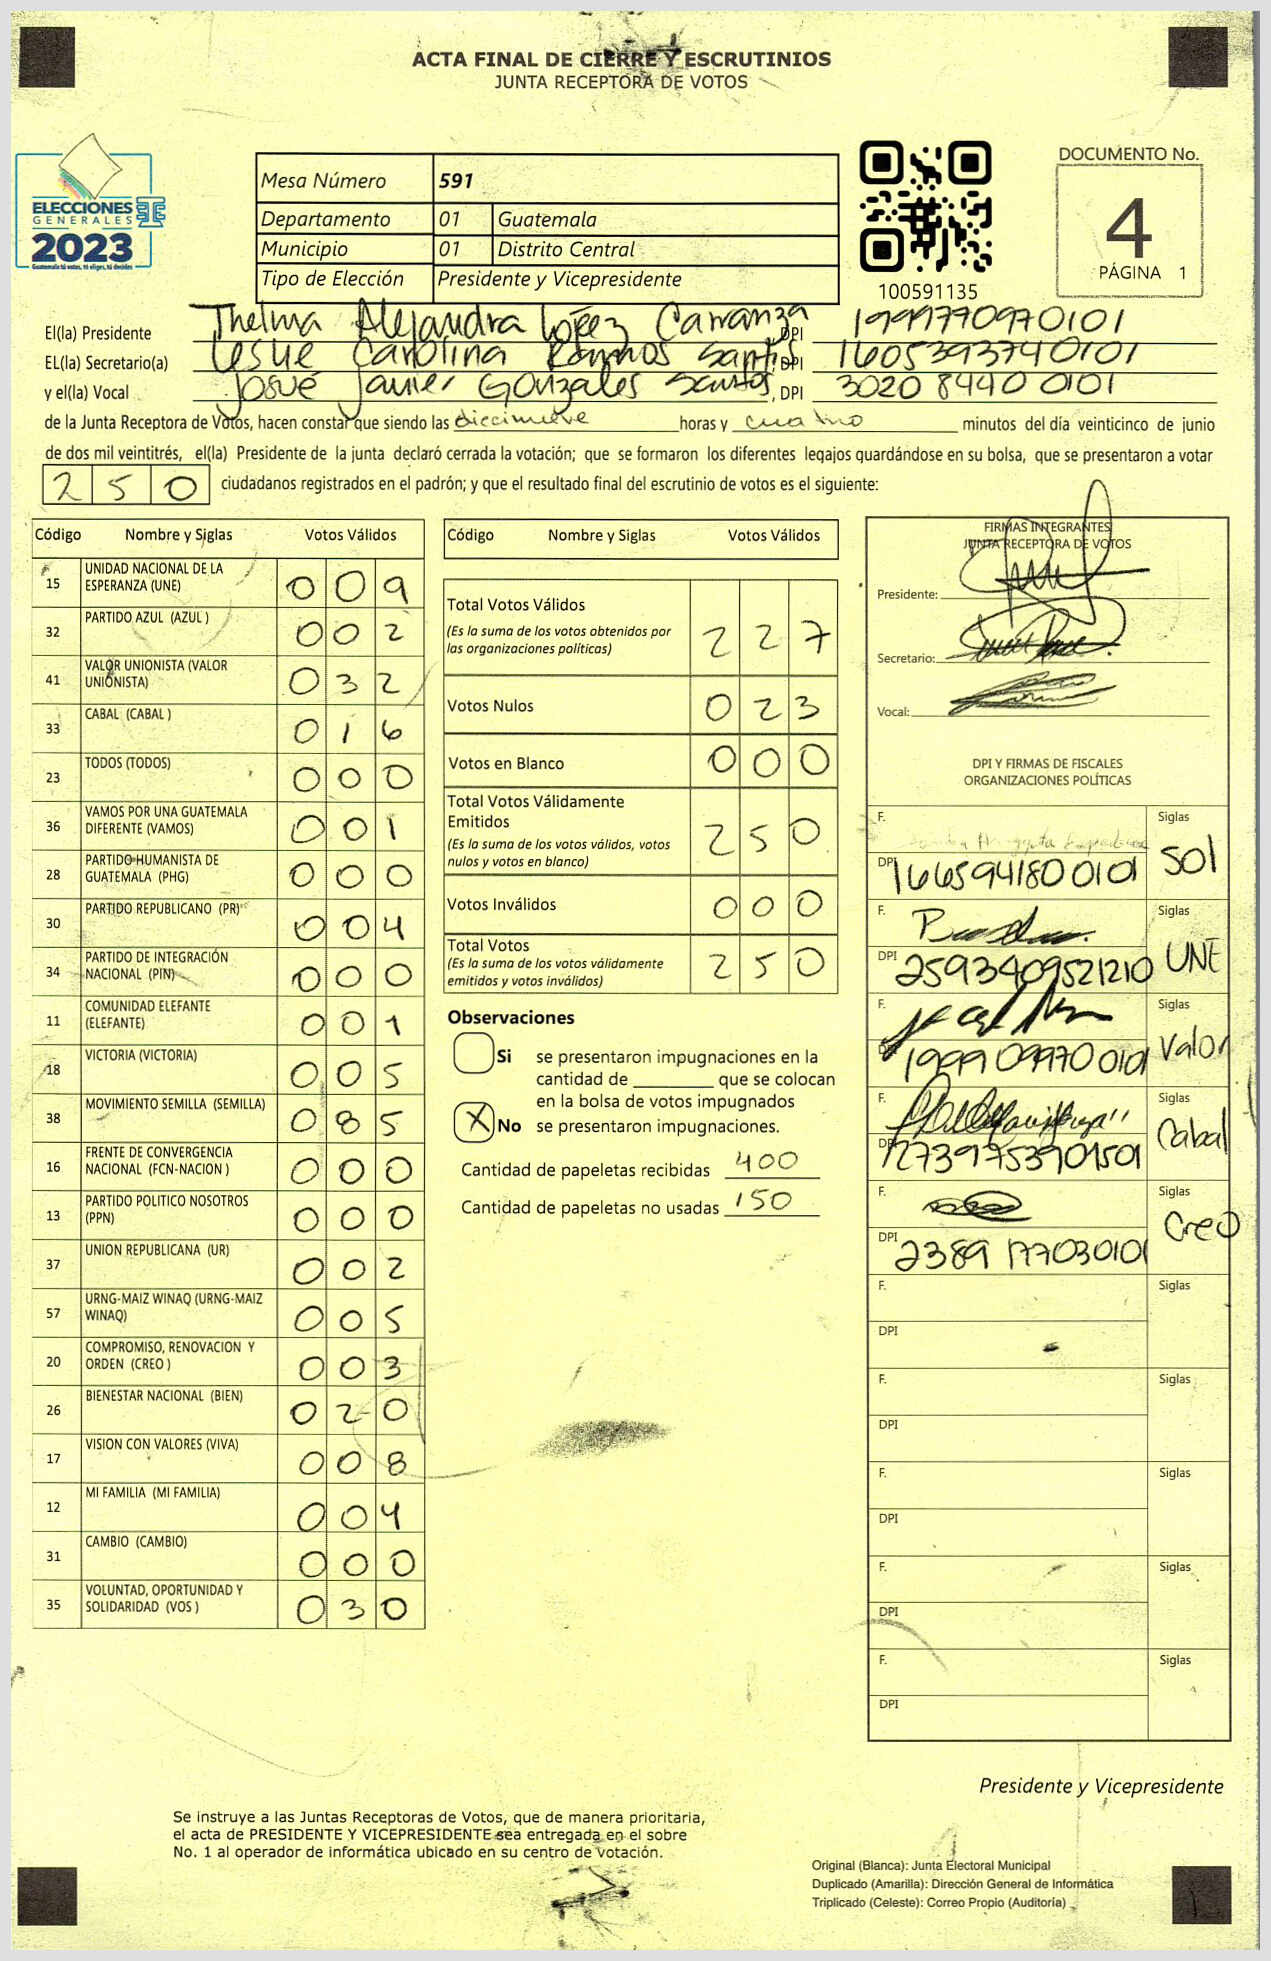 ACTA FINAL DE CIERRE Y ESCRUTINIOS
JUNTA RECEPTORA DE VOTOS
ELECCIONES
GENERALES
2023
Guatemala tú votas, tú eliges, tú decides
Mesa Número 591
Departamento 01 Guatemala
Municipio 01 Distrito Central
Tipo de Elección Presidente y Vicepresidente
100591135
DOCUMENTO No.
4
PÁGINA 1
El(la) Presidente Thelma Alejandra López Carranza, DPI 1999770970101
EL(la) Secretario(a) Leslie Carolina Ramos Santos, DPI 1605393740101
y el(la) Vocal Josué Javier Gonzales Santos, DPI 3020 8440 0101
de la Junta Receptora de Votos, hacen constar que siendo las diecinueve horas y cuatro minutos del día veinticinco de junio
de dos mil veintitrés, el(la) Presidente de la junta declaró cerrada la votación; que se formaron los diferentes legajos guardándose en su bolsa, que se presentaron a votar
250 ciudadanos registrados en el padrón; y que el resultado final del escrutinio de votos es el siguiente:
Código Nombre y Siglas Votos Válidos
15 UNIDAD NACIONAL DE LA ESPERANZA (UNE) 009
32 PARTIDO AZUL (AZUL ) 002
41 VALOR UNIONISTA (VALOR UNIONISTA) 032
33 CABAL (CABAL ) 016
23 TODOS (TODOS) 000
36 VAMOS POR UNA GUATEMALA DIFERENTE (VAMOS) 001
28 PARTIDO HUMANISTA DE GUATEMALA (PHG) 000
30 PARTIDO REPUBLICANO (PR) 004
34 PARTIDO DE INTEGRACIÓN NACIONAL (PIN) 000
11 COMUNIDAD ELEFANTE (ELEFANTE) 001
18 VICTORIA (VICTORIA) 005
38 MOVIMIENTO SEMILLA (SEMILLA) 085
16 FRENTE DE CONVERGENCIA NACIONAL (FCN-NACION ) 000
13 PARTIDO POLITICO NOSOTROS (PPN) 000
37 UNION REPUBLICANA (UR) 002
57 URNG-MAIZ WINAQ (URNG-MAIZ WINAQ) 005
20 COMPROMISO, RENOVACION Y ORDEN (CREO ) 003
26 BIENESTAR NACIONAL (BIEN) 020
17 VISION CON VALORES (VIVA) 008
12 MI FAMILIA (MI FAMILIA) 004
31 CAMBIO (CAMBIO) 000
35 VOLUNTAD, OPORTUNIDAD Y SOLIDARIDAD (VOS ) 030
Código Nombre y Siglas Votos Válidos
Total Votos Válidos 227
(Es la suma de los votos obtenidos por
las organizaciones políticas)
Votos Nulos 023
Votos en Blanco 000
Total Votos Válidamente
Emitidos 250
(Es la suma de los votos válidos, votos
nulos y votos en blanco)
Votos Inválidos 000
Total Votos 250
(Es la suma de los votos válidamente
emitidos y votos inválidos)
Observaciones
Si se presentaron impugnaciones en la
cantidad de ________ que se colocan
en la bolsa de votos impugnados
X No se presentaron impugnaciones.
Cantidad de papeletas recibidas 400
Cantidad de papeletas no usadas 150
FIRMAS INTEGRANTES
JUNTA RECEPTORA DE VOTOS
Presidente:
Secretario:
Vocal:
DPI Y FIRMAS DE FISCALES
ORGANIZACIONES POLÍTICAS
F. Siglas
DPI 1665941800101 Sol
F. Siglas
DPI 2593409521210 UNE
F. Siglas
DPI 1999099700101 Valor
F. Siglas
DPI 12739753901501 Cabal
F. Siglas
DPI 2389177030101 Creo
F. Siglas
DPI
F. Siglas
DPI
F. Siglas
DPI
F. Siglas
DPI
F. Siglas
DPI
Presidente y Vicepresidente
Se instruye a las Juntas Receptoras de Votos, que de manera prioritaria,
el acta de PRESIDENTE Y VICEPRESIDENTE sea entregada en el sobre
No. 1 al operador de informática ubicado en su centro de votación.
Original (Blanca): Junta Electoral Municipal
Duplicado (Amarilla): Dirección General de Informática
Triplicado (Celeste): Correo Propio (Auditoría)